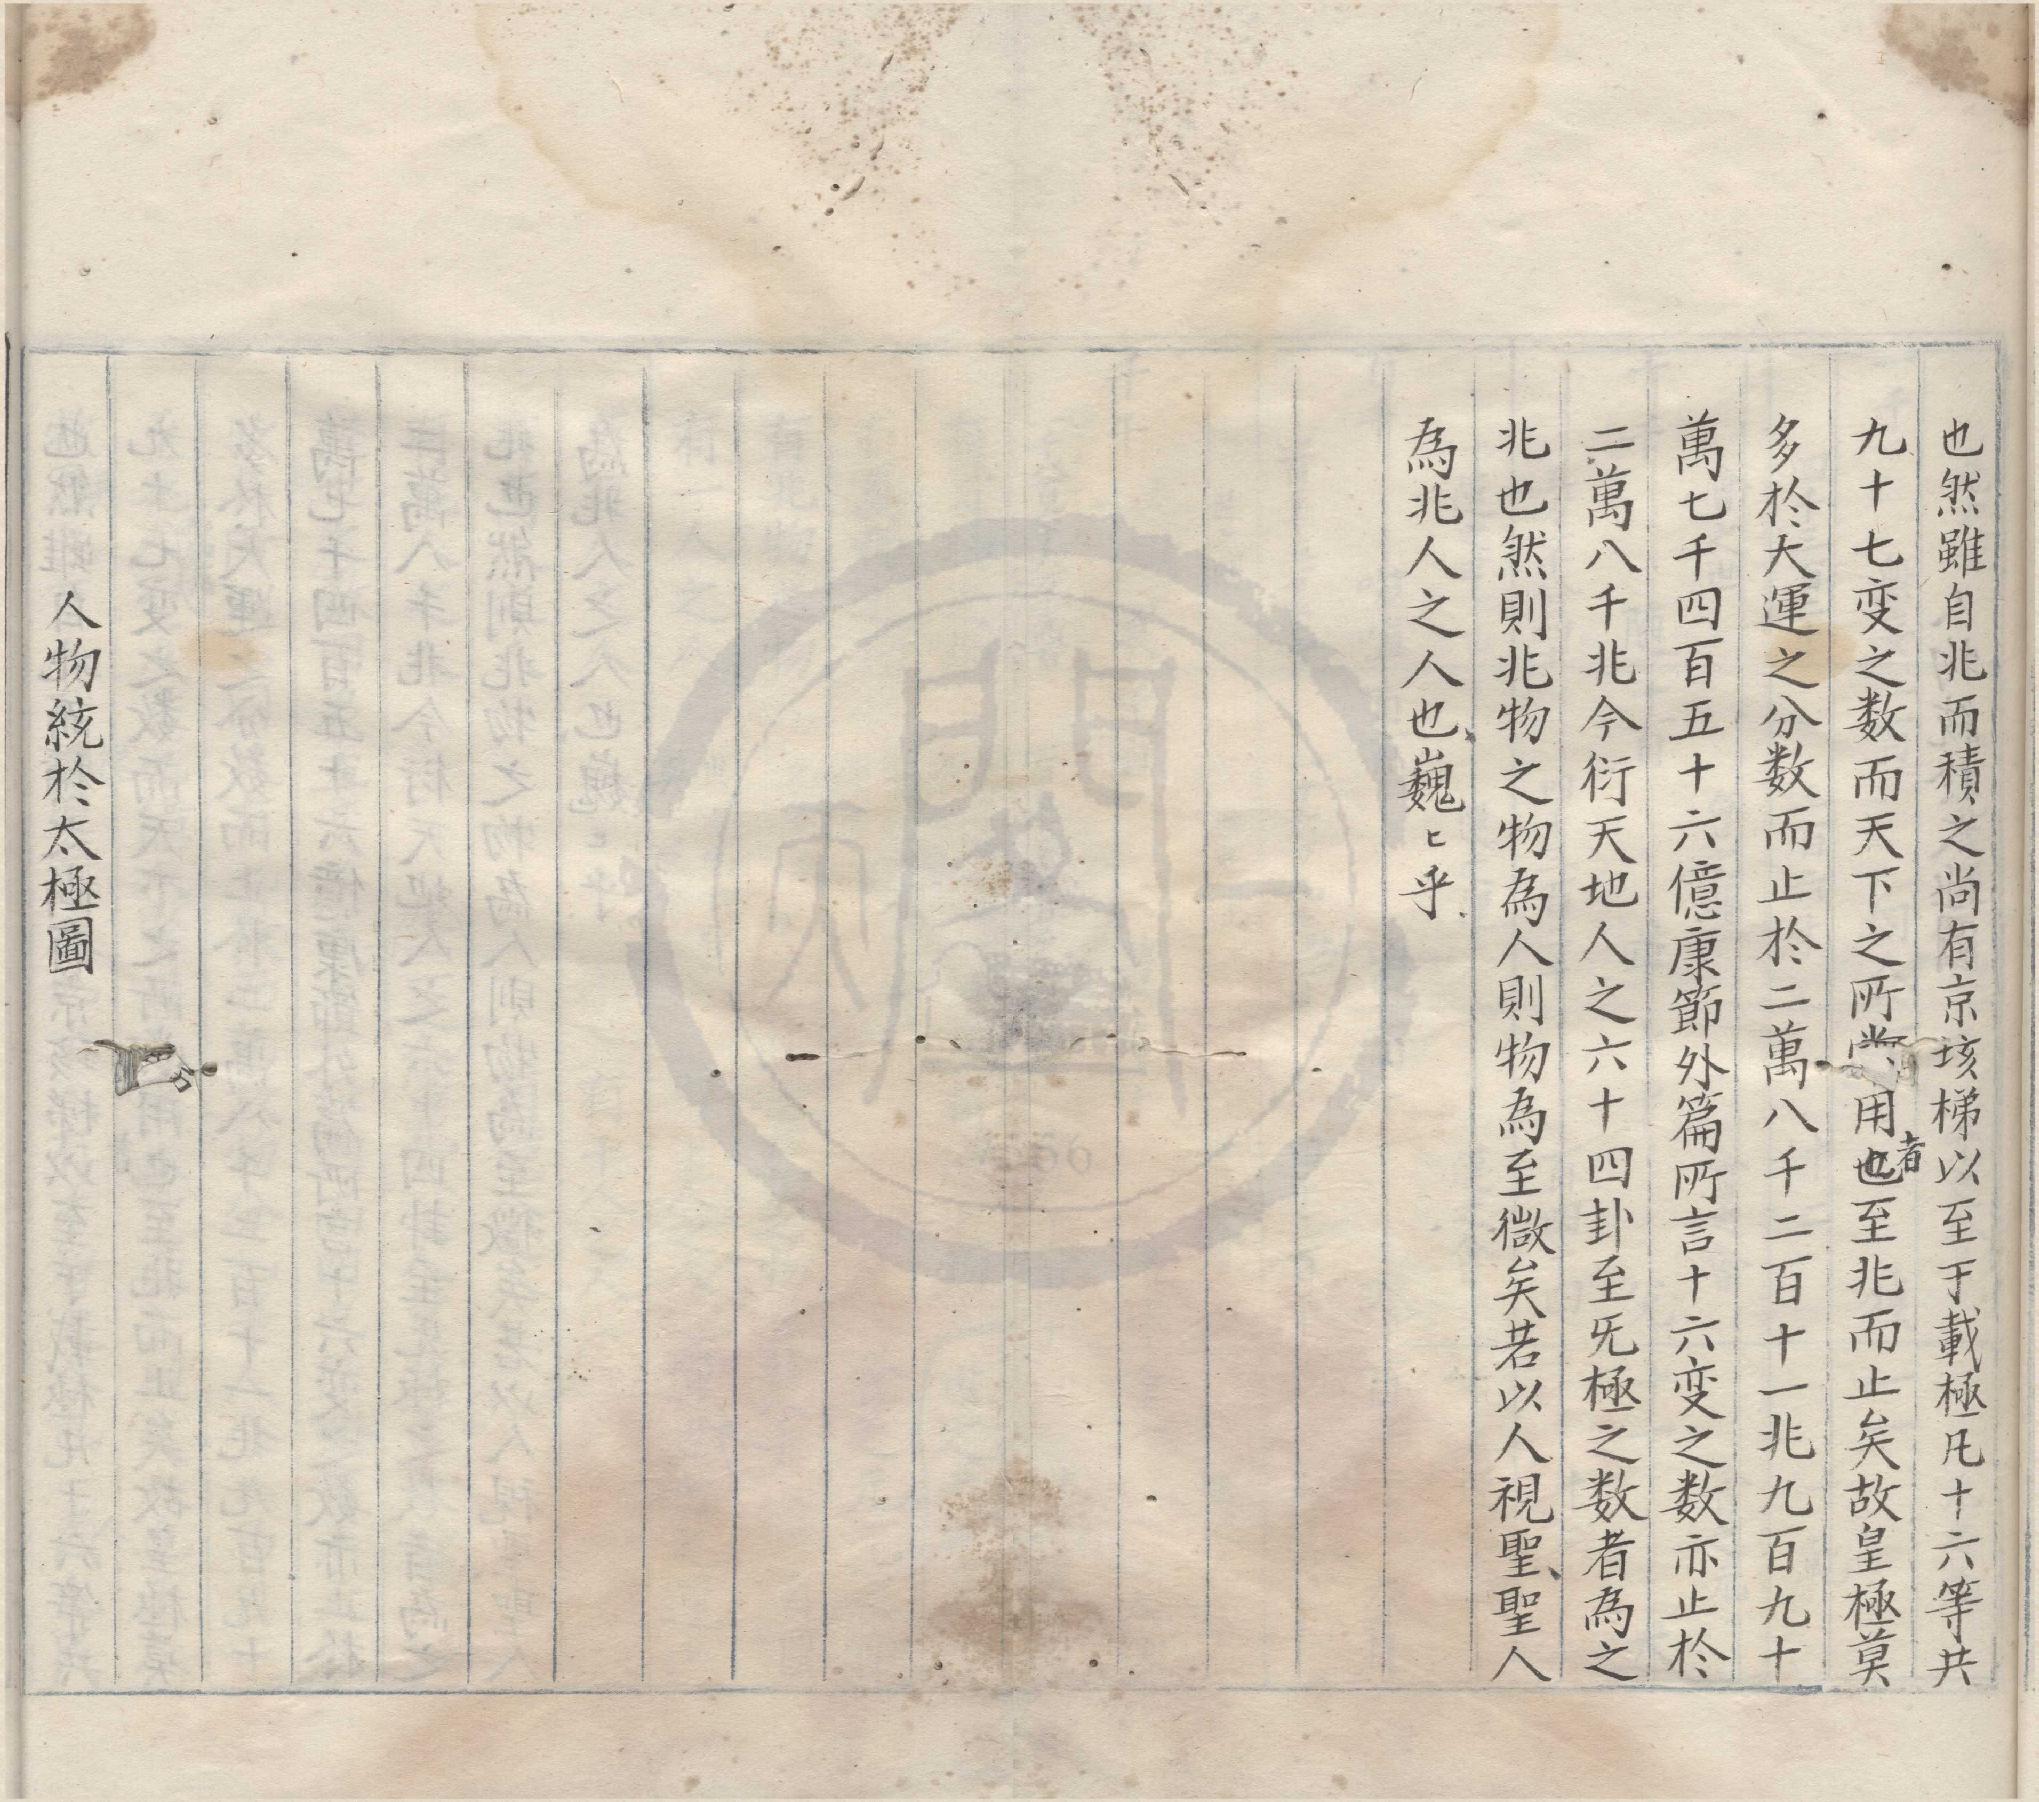 也然雖自兆而積之尚有京垓梯以至于載極凡十六等共
九十七变之数而天下之所常用者也至兆而止矣故皇極莫
多於大運之分数而止於二萬八千二百十一兆九百九十
萬七千四百五十六億康節外篇所言十六变之数亦止於
二萬八千兆今衍天地人之六十四卦至旡極之数者為之
兆也然則兆物之物為人則物為至微矣若以人視聖聖人
為兆人之人也巍〻乎
人物統於太極圖